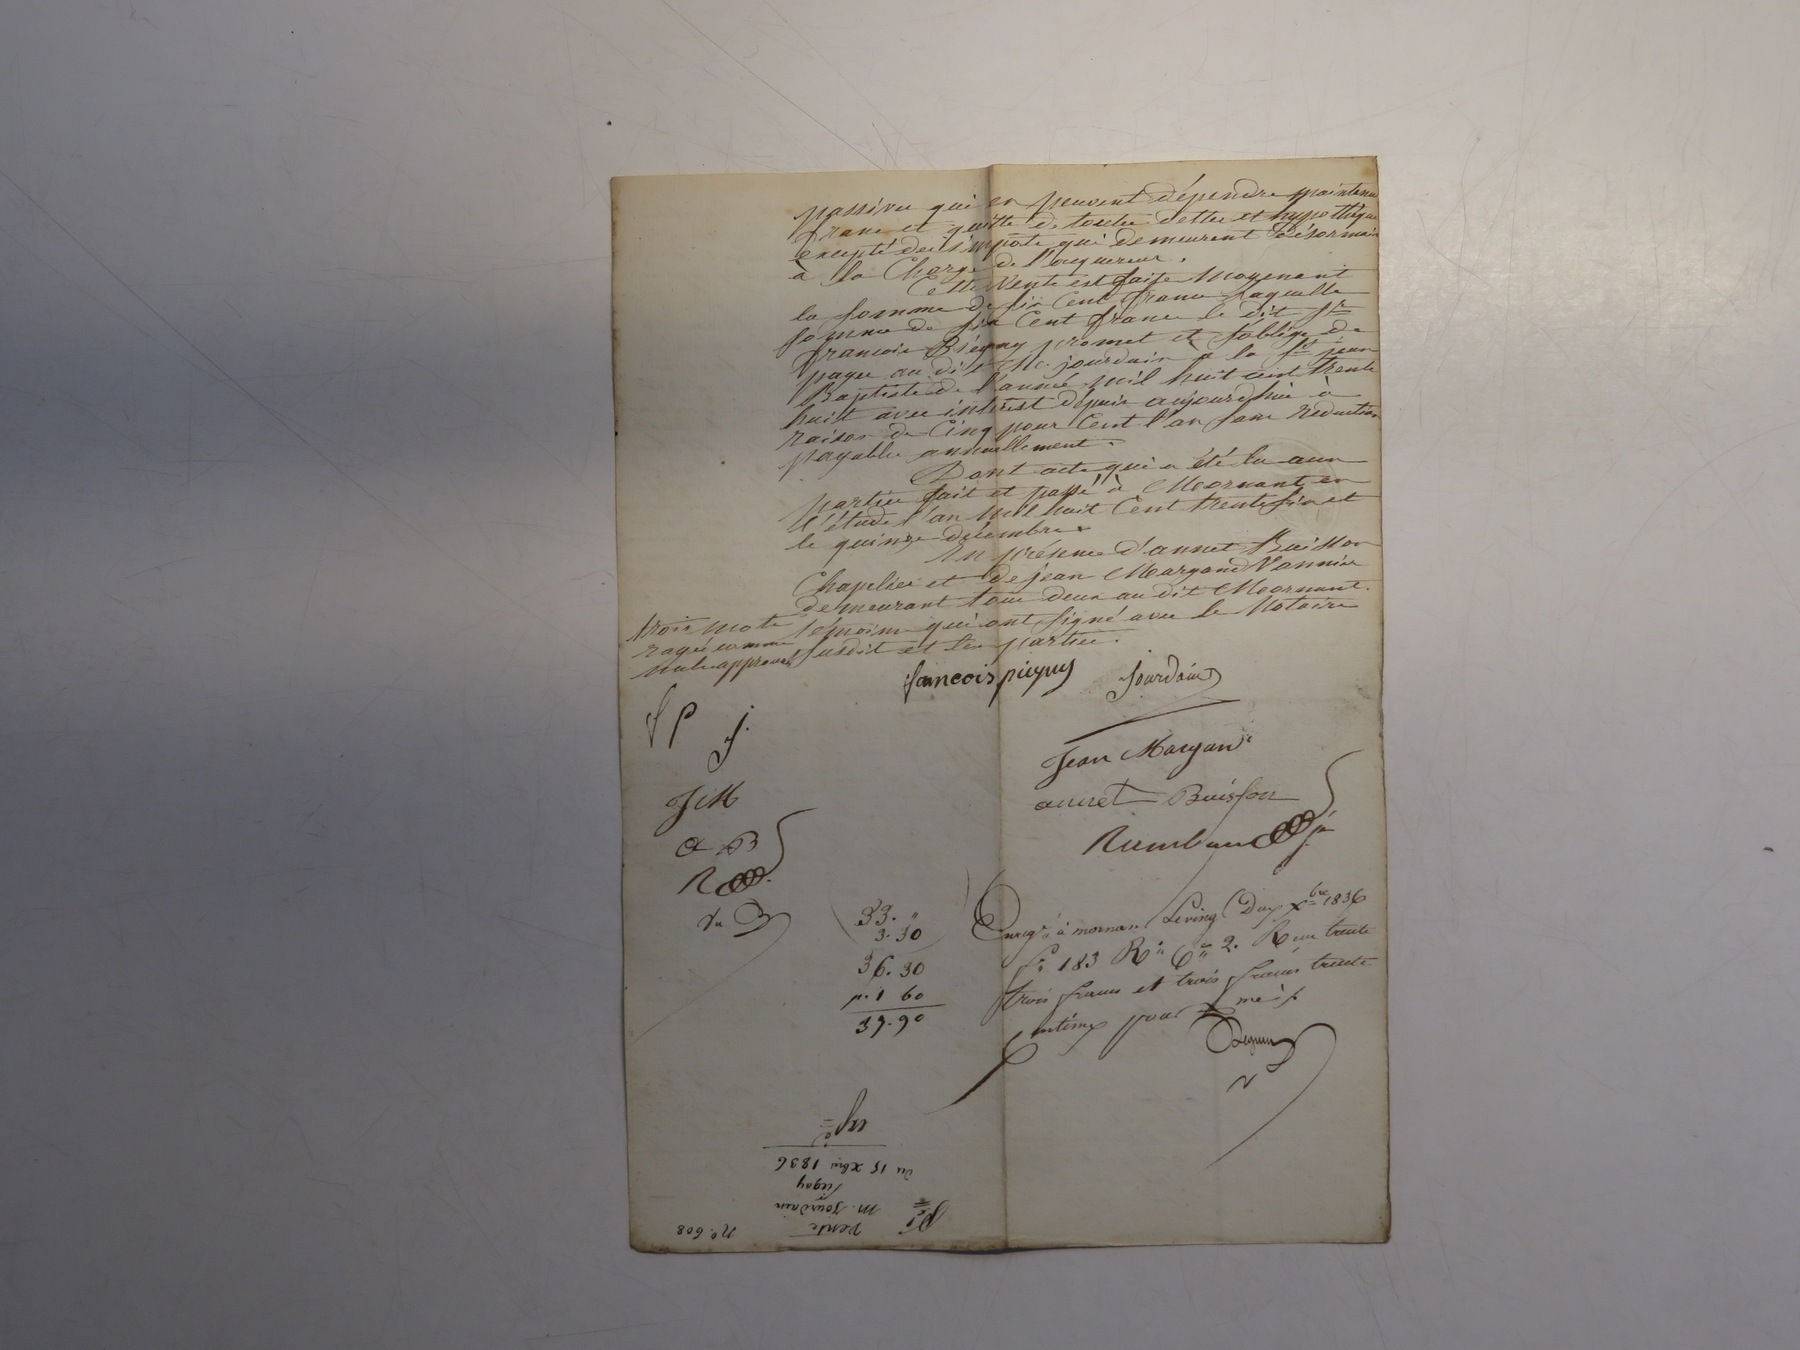 passives qui en peuvent dépendre maintenu
franc et quitte de toutes dettes et hypothèques
excepté des impots qui demeurent désormais
à la Charge de l'acquereur.
Cette Vente est faite Moyenant
la somme de six Cent francs Laquelle
somme de six Cent francs le dit Sr
francois Piégay promet et soblige de
payer au dit Me. jourdain a la St jean
Baptiste de l'année mil huit cent trente
huit avec intérêst depuis aujourdhui à
raison de Cinq pour Cent l'an sans réduction
payables annuellement.
Dont acte qui a été lu aux
parties fait et passé à Mornant en
l'étude l'an Mil huit Cent trente six et
le quinze décembre.
En présence d'annet Buisson
Chapelier et de jean Margand Vannier
demeurant tous deux au dit Mornant.
témoins qui ont signé avec le Notaire
susdit et les parties.
trois mots
rayés comme
nuls approuvés
francois pieguy
Jourdain
f P
j.
Jean Margand
annet Buisson
J M
a B
R
33. "
3. 30
36. 30
p. 1 60
37. 90
Enregé à mornan Le vingt Deux Xbre 1836
fo 183 Ro Ce 2. Reçu trente
trois francs et trois francs trente
centimes pour
du 15 Xbre 1836
Piegay
à
M. Jourdain
Vente
No. 608